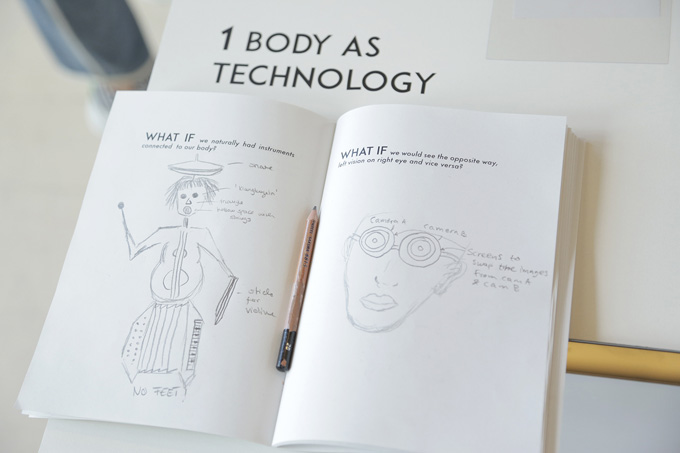 1 BODY AS
TECHNOLOGY
WHAT IF we naturally had instruments
connected to our body?
sticks
for
NO FEET
WHAT IF we would see the opposite way,
left vision on right eye and vice versa?
camera A
camera B
Screens to
swap the images
from cam A
& cam B